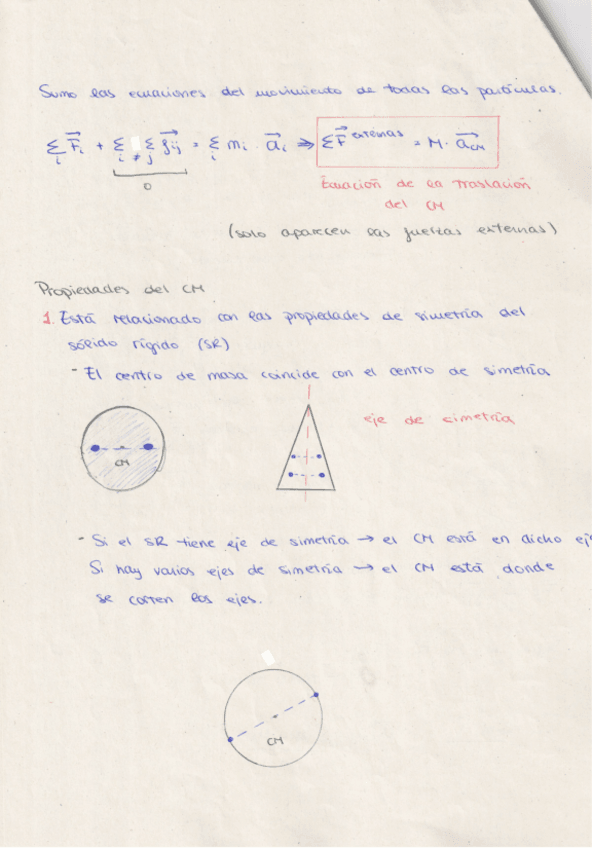 Sumo las ecuaciones del movimiento de todas las partículas.
Σi F⃗i + Σi≠ Σj f⃗ij = Σi mi · a⃗i ⇒ ΣF⃗ externas = M · a⃗CM
0
Ecuación de la Traslación
del CM
(solo aparecen las fuerzas externas)
Propiedades del CM
1. Está relacionado con las propiedades de simetría del
sólido rígido (SR)
- El centro de masa coincide con el centro de simetría
eje de simetría
CM
- Si el SR tiene eje de simetría → el CM está en dicho eje
Si hay varios ejes de simetría → el CM está donde
se corten los ejes.
CM